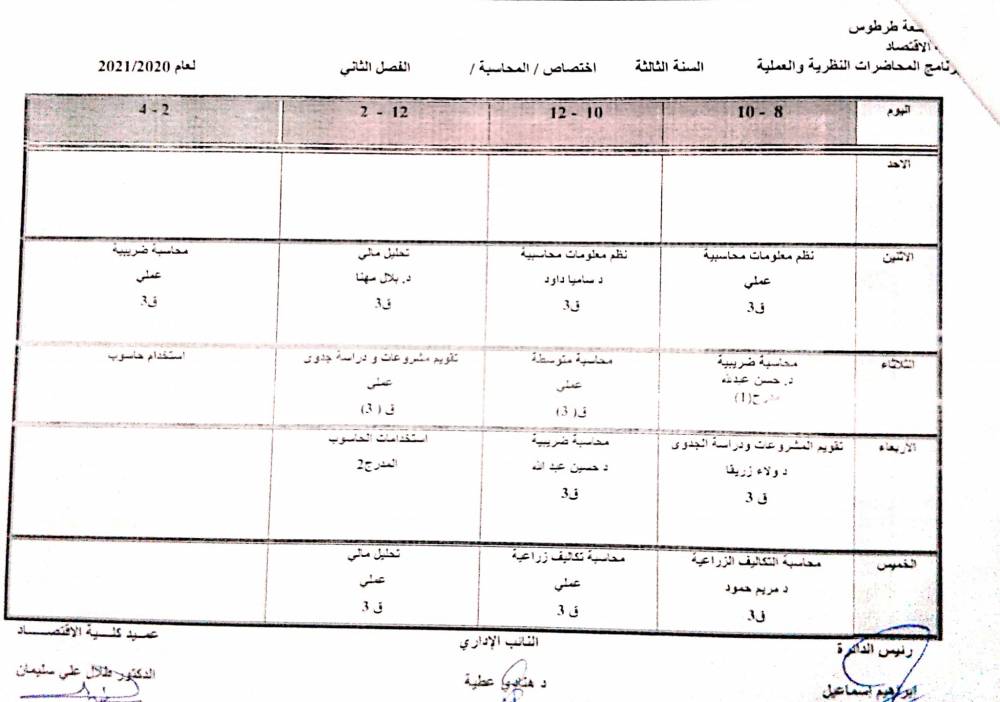 طرطوس
الاقتصاد
المحاضرات النظرية والعملية السنة الثالثة اختصاص / المحاسبة / الفصل الثاني لعام 2021/2020
اليوم 8 - 10 10 - 12 12 - 2 2 - 4
الاحد
الاثنين
نظم معلومات محاسبية
عملي
ق3
نظم معلومات محاسبية
د ساميا داود
ق3
تحليل مالي
د. بلال مهنا
ق3
محاسبة ضريبية
عملي
ق3
الثلاثاء
محاسبة ضريبية
د. حسن عبدلله
(1)
محاسبة متوسطة
عملي
ق( 3)
تقويم مشروعات و دراسة جدوى
عملي
ق ( 3)
استخدام حاسوب
الاربعاء
تقويم المشروعات ودراسة الجدوى
د ولاء زريقا
ق 3
محاسبة ضريبية
د حسين عبد الله
ق3
استخدامات الحاسوب
المدرج2
الخميس
محاسبة التكاليف الزراعية
د مريم حمود
ق3
محاسبة تكاليف زراعية
عملي
ق 3
تحليل مالي
عملي
ق 3
رئيس الدائرة النائب الإداري عميد كلية الاقتصاد
ابراهيم اسماعيل د هنادي عطية الدكتور طلال علي سليمان